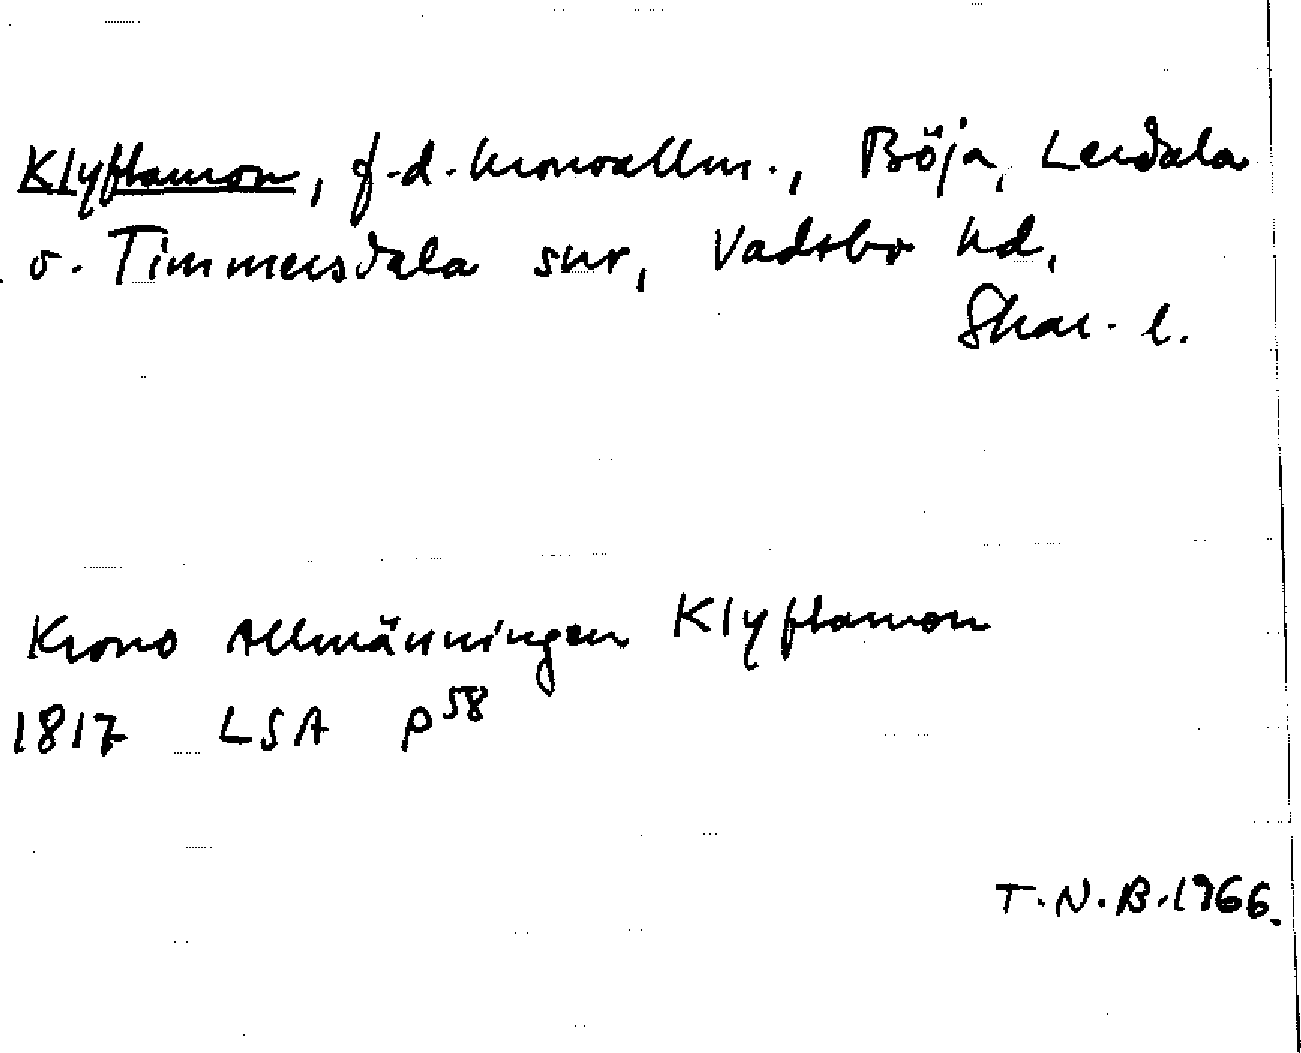 Klyftamon, f.d. kronoallm., Böja, Lerdala
o. Timmersdala snr, Vadsbo hd,
Skar. l.
Krono Allmänningen Klyftamon
1817 LSA P 58
T.N.B. 1966.